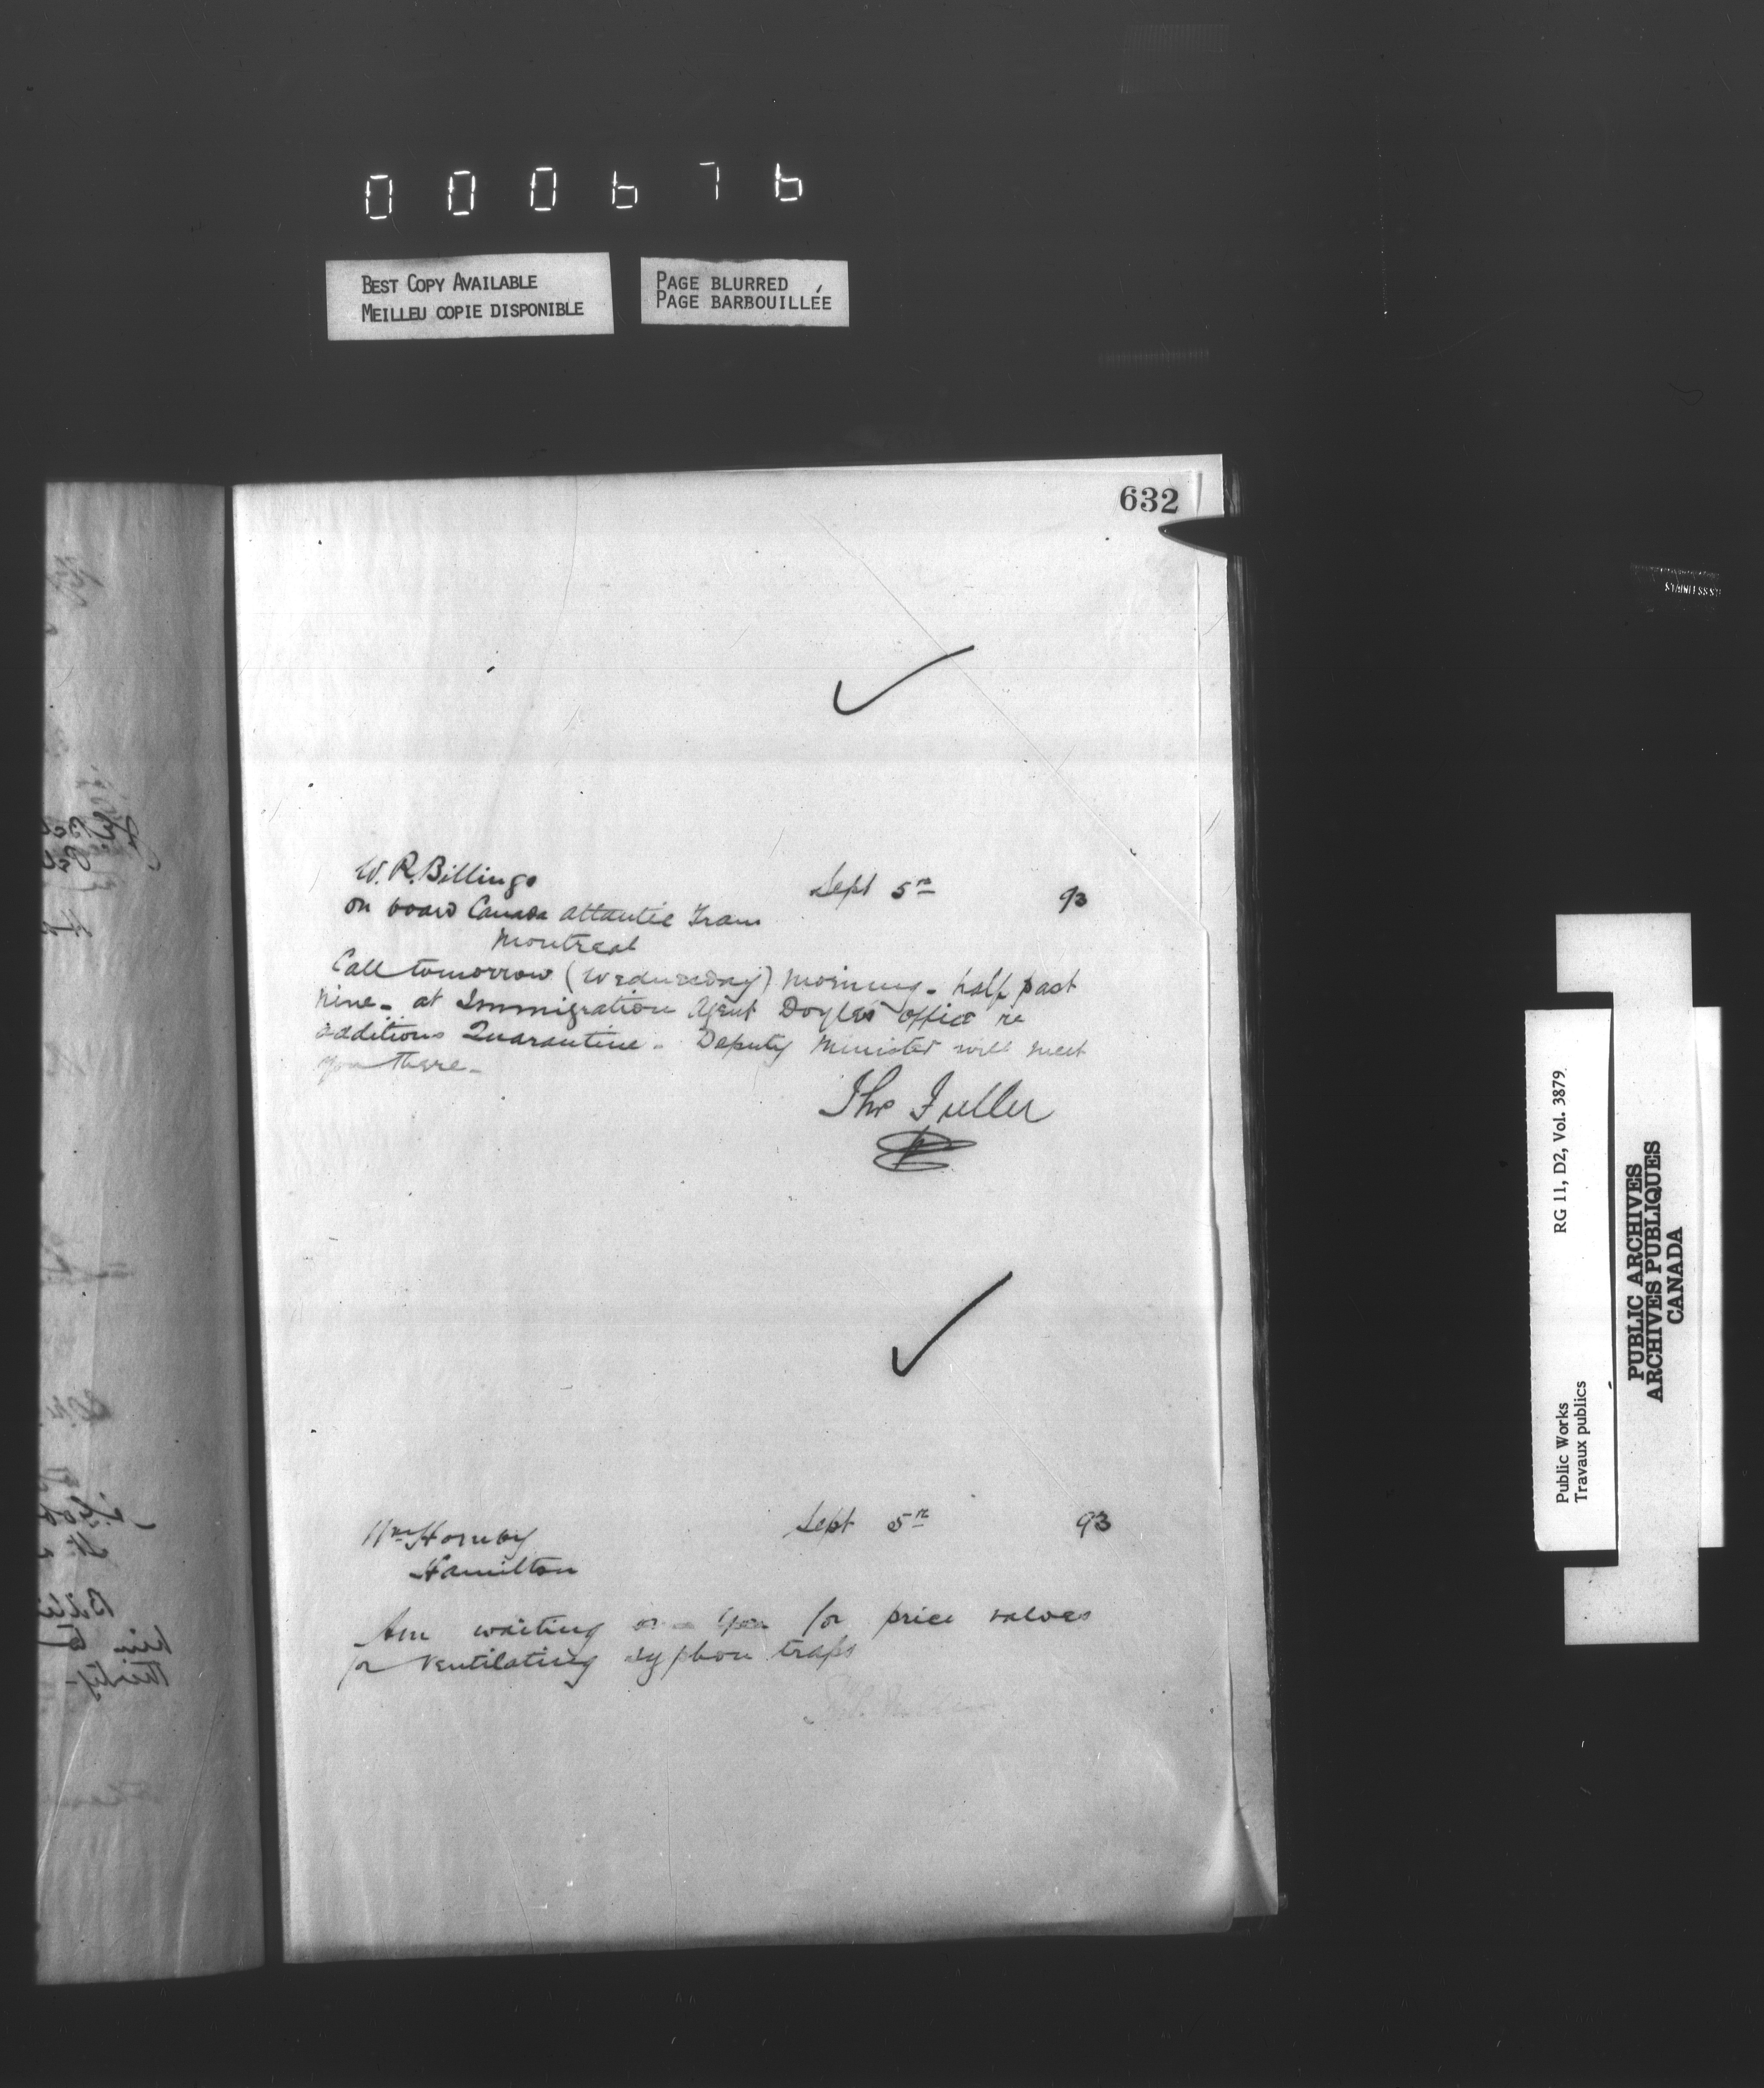 000676
BEST COPY AVAILABLE
MEILLEU COPIE DISPONIBLE
PAGE BLURRED
PAGE BARBOUILLÉE
632
W. R. Billings
Sept 5th 93
on board Canada Atlantic Train
Montreal
Call tomorrow (Wednesday) morning - half past
nine - at Immigration Agent Doyle's office re
additions Quarantine - Deputy Minister will meet
you there -
Thos Fuller
Wm Hornby
Sept 5th 93
Hamilton
Am waiting on you for price valves
for ventilating syphon traps
Public Works
Travaux publics
RG 11, D2, Vol. 3879
PUBLIC ARCHIVES
ARCHIVES PUBLIQUES
CANADA